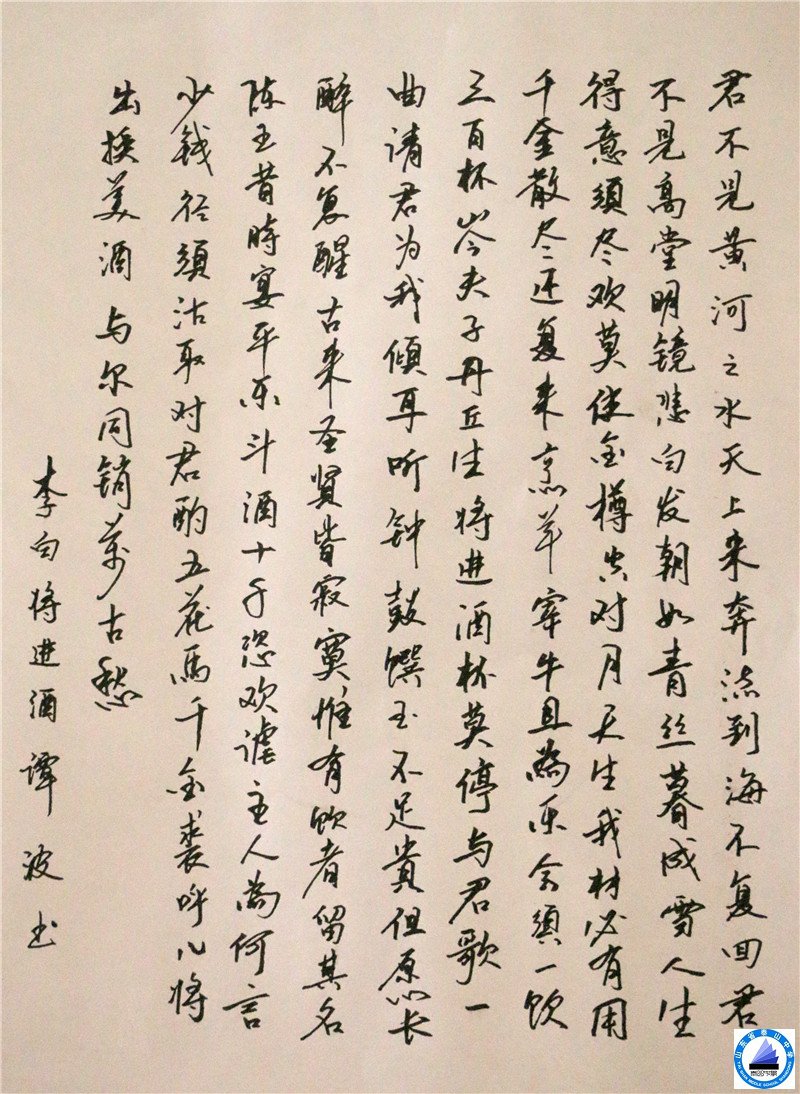 君不見黄河之水天上来奔流到海不复回君
不見高堂明镜悲白发朝如青丝暮成雪人生
得意須尽欢莫使金樽空对月天生我材必有用
千金散尽还复来烹羊宰牛且為乐会須一饮
三百杯岑夫子丹丘生将進酒杯莫停与君歌一
曲请君为我倾耳听钟鼓馔玉不足贵但愿长
醉不复醒古来圣贤皆寂寞惟有饮者留其名
陈王昔時宴平乐斗酒十千恣欢谑主人為何言
少钱径須沽取对君酌五花馬千金裘呼儿将
出换美酒与尔同销萬古愁
李白将進酒谭波书
山东省泰山中学